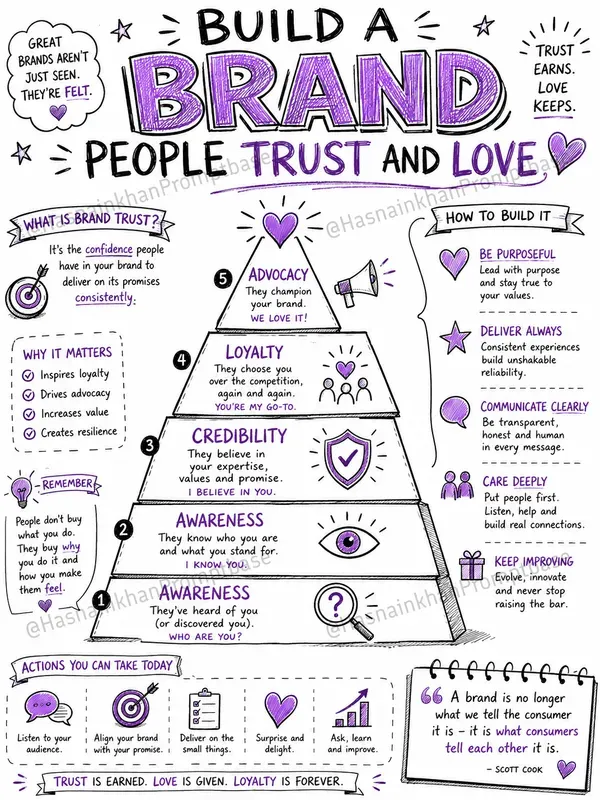 GREAT
BRANDS AREN'T
JUST SEEN.
THEY'RE FELT.
BUILD A
BRAND
PEOPLE TRUST AND LOVE
TRUST
EARNS.
LOVE
KEEPS.
@HasnainkhanPromptbase
@HasnainkhanPromptbase
WHAT IS BRAND TRUST?
It's the confidence people
have in your brand to
deliver on its promises
consistently.
WHY IT MATTERS
Inspires loyalty
Drives advocacy
Increases value
Creates resilience
REMEMBER
People don't buy
what you do.
They buy why
you do it and
how you make
them feel.
5
ADVOCACY
They champion
your brand.
WE LOVE IT!
4
LOYALTY
They choose you
over the competition,
again and again.
YOU'RE MY GO-TO.
3
CREDIBILITY
They believe in
your expertise,
values and promise.
I BELIEVE IN YOU.
2
AWARENESS
They know who you are
and what you stand for.
I KNOW YOU.
1
AWARENESS
They've heard of you
(or discovered you).
WHO ARE YOU?
?
@HasnainkhanPromptbase
@HasnainkhanPromptbase
HOW TO BUILD IT
BE PURPOSEFUL
Lead with purpose
and stay true to
your values.
DELIVER ALWAYS
Consistent experiences
build unshakable
reliability.
COMMUNICATE CLEARLY
Be transparent,
honest and human
in every message.
CARE DEEPLY
Put people first.
Listen, help and
build real connections.
KEEP IMPROVING
Evolve, innovate
and never stop
raising the bar.
ACTIONS YOU CAN TAKE TODAY
Listen to your
audience.
Align your brand
with your promise.
Deliver on the
small things.
Surprise and
delight.
Ask, learn
and improve.
“ A brand is no longer
what we tell the consumer
it is – it is what consumers
tell each other it is.
– SCOTT COOK
TRUST IS EARNED. LOVE IS GIVEN. LOYALTY IS FOREVER.